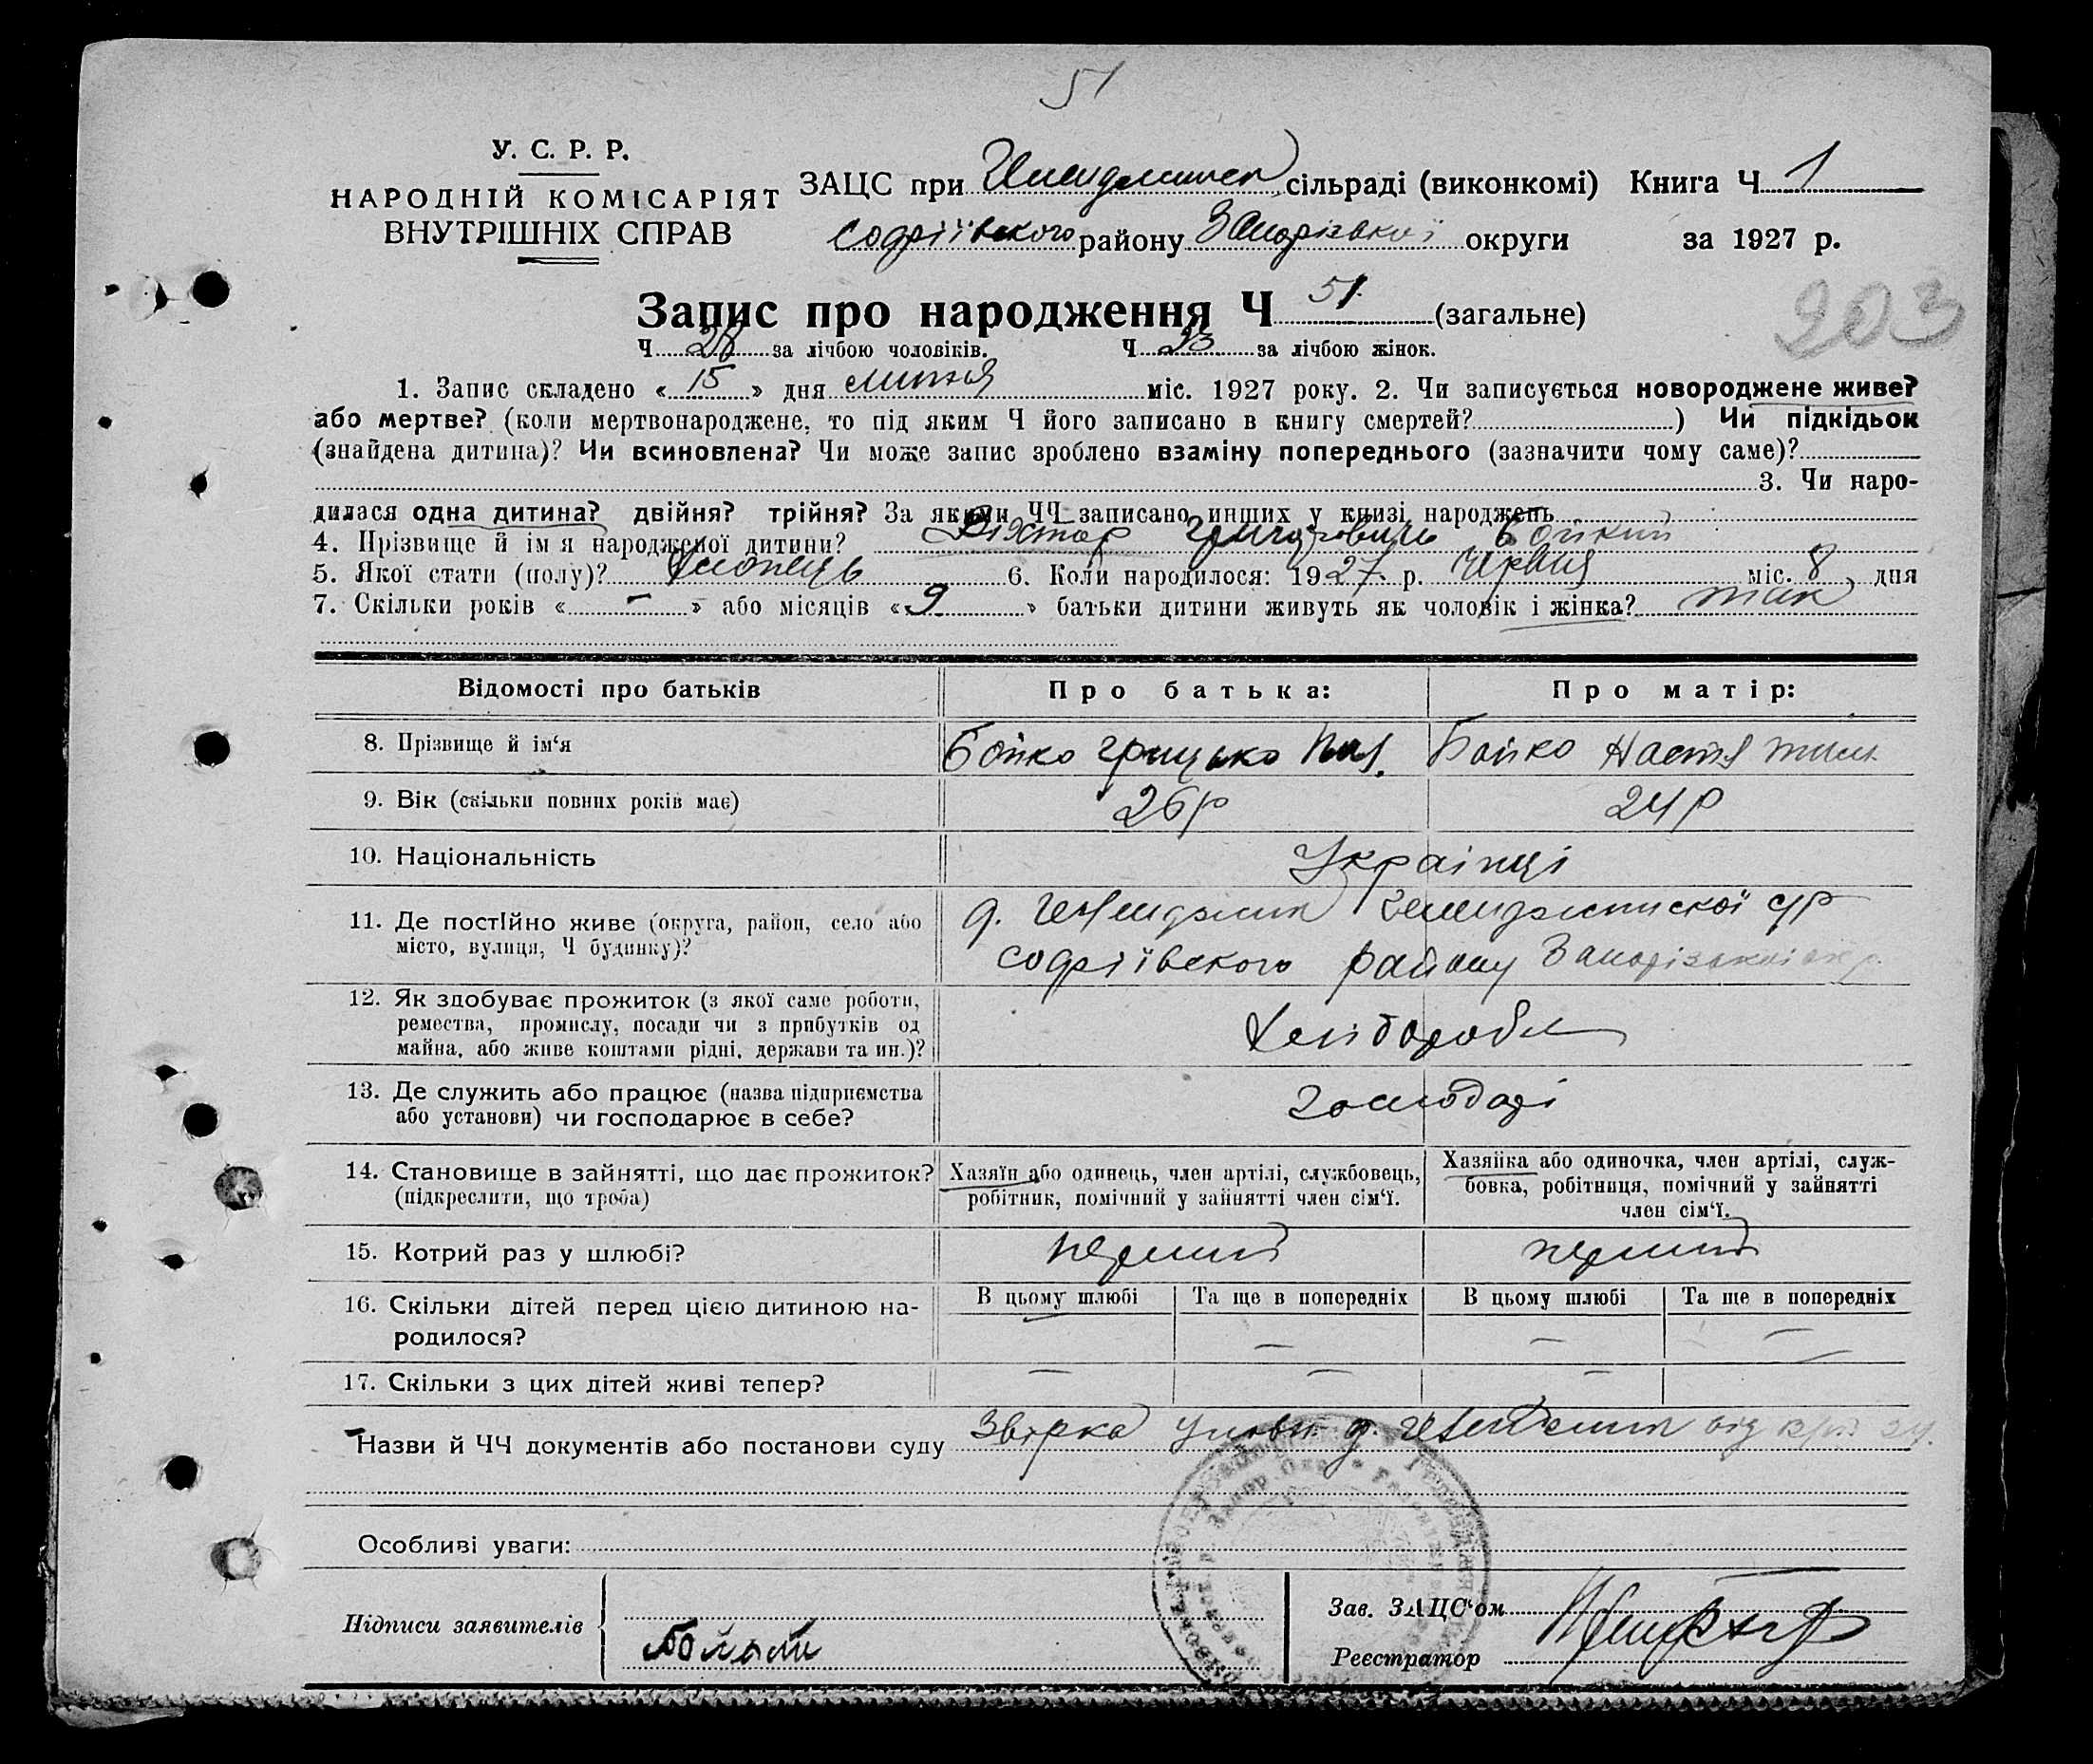 51
У. С. Р. Р.
НАРОДНІЙ КОМІСАРІЯТ
ВНУТРІШНІХ СПРАВ
ЗАЦС при сільраді (виконкомі) Книга Ч 1
софіївского району Запорізької округи за 1927 р.
Запис про народження Ч 51 (загальне)
203
Ч 28 за лічбою чоловіків. Ч 23 за лічбою жінок.
1. Запис складено « 15 » дня липня міс. 1927 року. 2. Чи записується новороджене живе?
або мертве? (коли мертвонароджене, то під яким Ч його записано в книгу смертей? ) Чи підкідьок
(знайдена дитина)? Чи всиновлена? Чи може запис зроблено взаміну попереднього (зазначити чому саме)?
3. Чи наро-
дилася одна дитина? двійня? трійня? За якими ЧЧ записано инших у книзі народжень
4. Прізвище й ім я народженої дитини? Віхтор Григоровичь Бойкий
5. Якої стати (полу)? Хлопець 6. Коли народилося: 1927 р. Червня міс. 8 , дня
7. Скільки років « - » або місяців « 9 » батьки дитини живуть як чоловік і жінка? так
Відомості про батьків Про батька: Про матір:
8. Прізвище й ім‘я Бойко Грицько Бойко Настя
9. Вік (скільки повних років має) 26 р 24 р
10. Національність Українці
11. Де постійно живе (округа, район, село або д. с/р
місто, вулиця, Ч будинку)? софіївского району Запорізької окр.
12. Як здобуває прожиток (з якої саме роботи,
ремества, промислу, посади чи з прибутків од Хліборобы
майна, або живе коштами рідні, держави та ин.)?
13. Де служить або працює (назва підприємства
або установи) чи господарює в себе? господарі
14. Становище в зайнятті, що дає прожиток? Хазяїн або одинець, член артілі, службовець, Хазяйка або одиночка, член артілі, служ-
(підкреслити, що треба) робітник, помічний у зайнятті член сім‘ї. бовка, робітниця, помічний у зайнятті
член сім‘ї.
15. Котрий раз у шлюбі? перший перший
16. Скільки дітей перед цією дитиною на- В цьому шлюбі Та ще в попередніх В цьому шлюбі Та ще в попередніх
родилося? — — —
17. Скільки з цих дітей живі тепер? — — —
Назви й ЧЧ документів або постанови суду д. від
Особливі уваги:
Підписи заявителів
Зав. ЗАЦС‘ом
Реєстратор